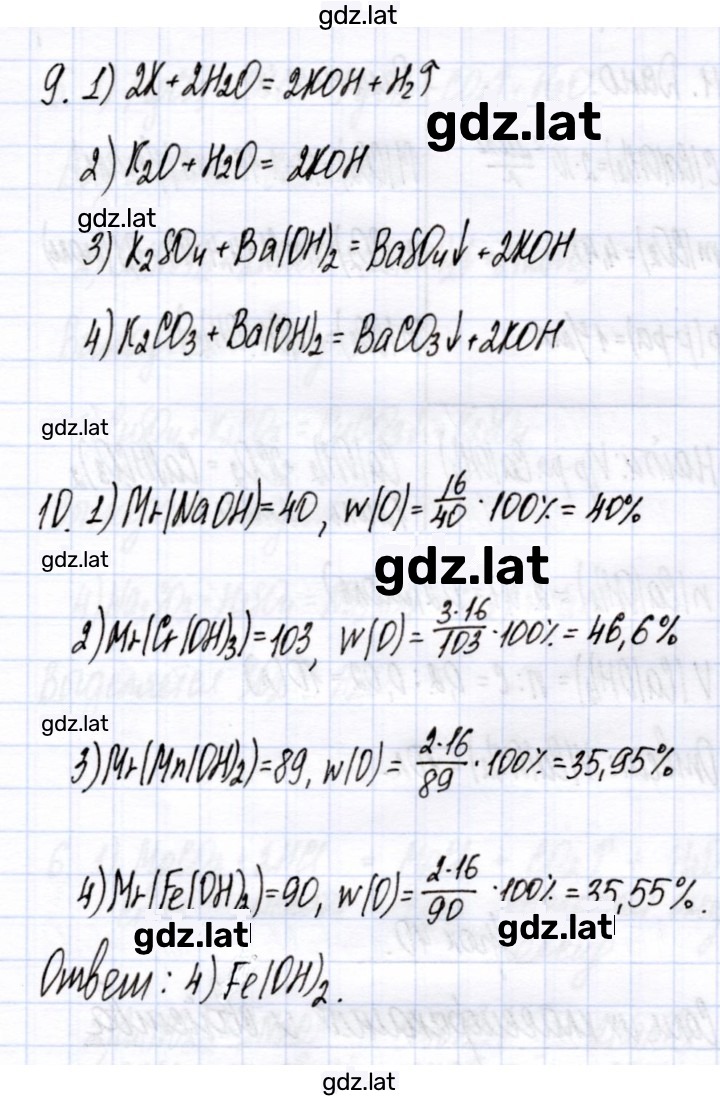 gdz.lat
9. 1) 2K + 2H2O = 2KOH + H₂↑
gdz.lat
2) K2O + H2O = 2KOH
gdz.lat
3) K₂SO₄ + Ba(OH)₂ = BaSO₄↓ + 2KOH
4) K₂CO₃ + Ba(OH)₂ = BaCO₃↓ + 2KOH
gdz.lat
10. 1) Mr(NaOH) = 40, w(O) = 16/40 · 100% = 40%
gdz.lat
gdz.lat
2) Mr(Cr(OH)₃) = 103, w(O) = 3·16/103 · 100% = 46,6%
gdz.lat
3) Mr(Mn(OH)₂) = 89, w(O) = 2·16/89 · 100% = 35,95%
4) Mr(Fe(OH)₂) = 90, w(O) = 2·16/90 · 100% = 35,55%.
gdz.lat
gdz.lat
Ответ: 4) Fe(OH)₂.
gdz.lat